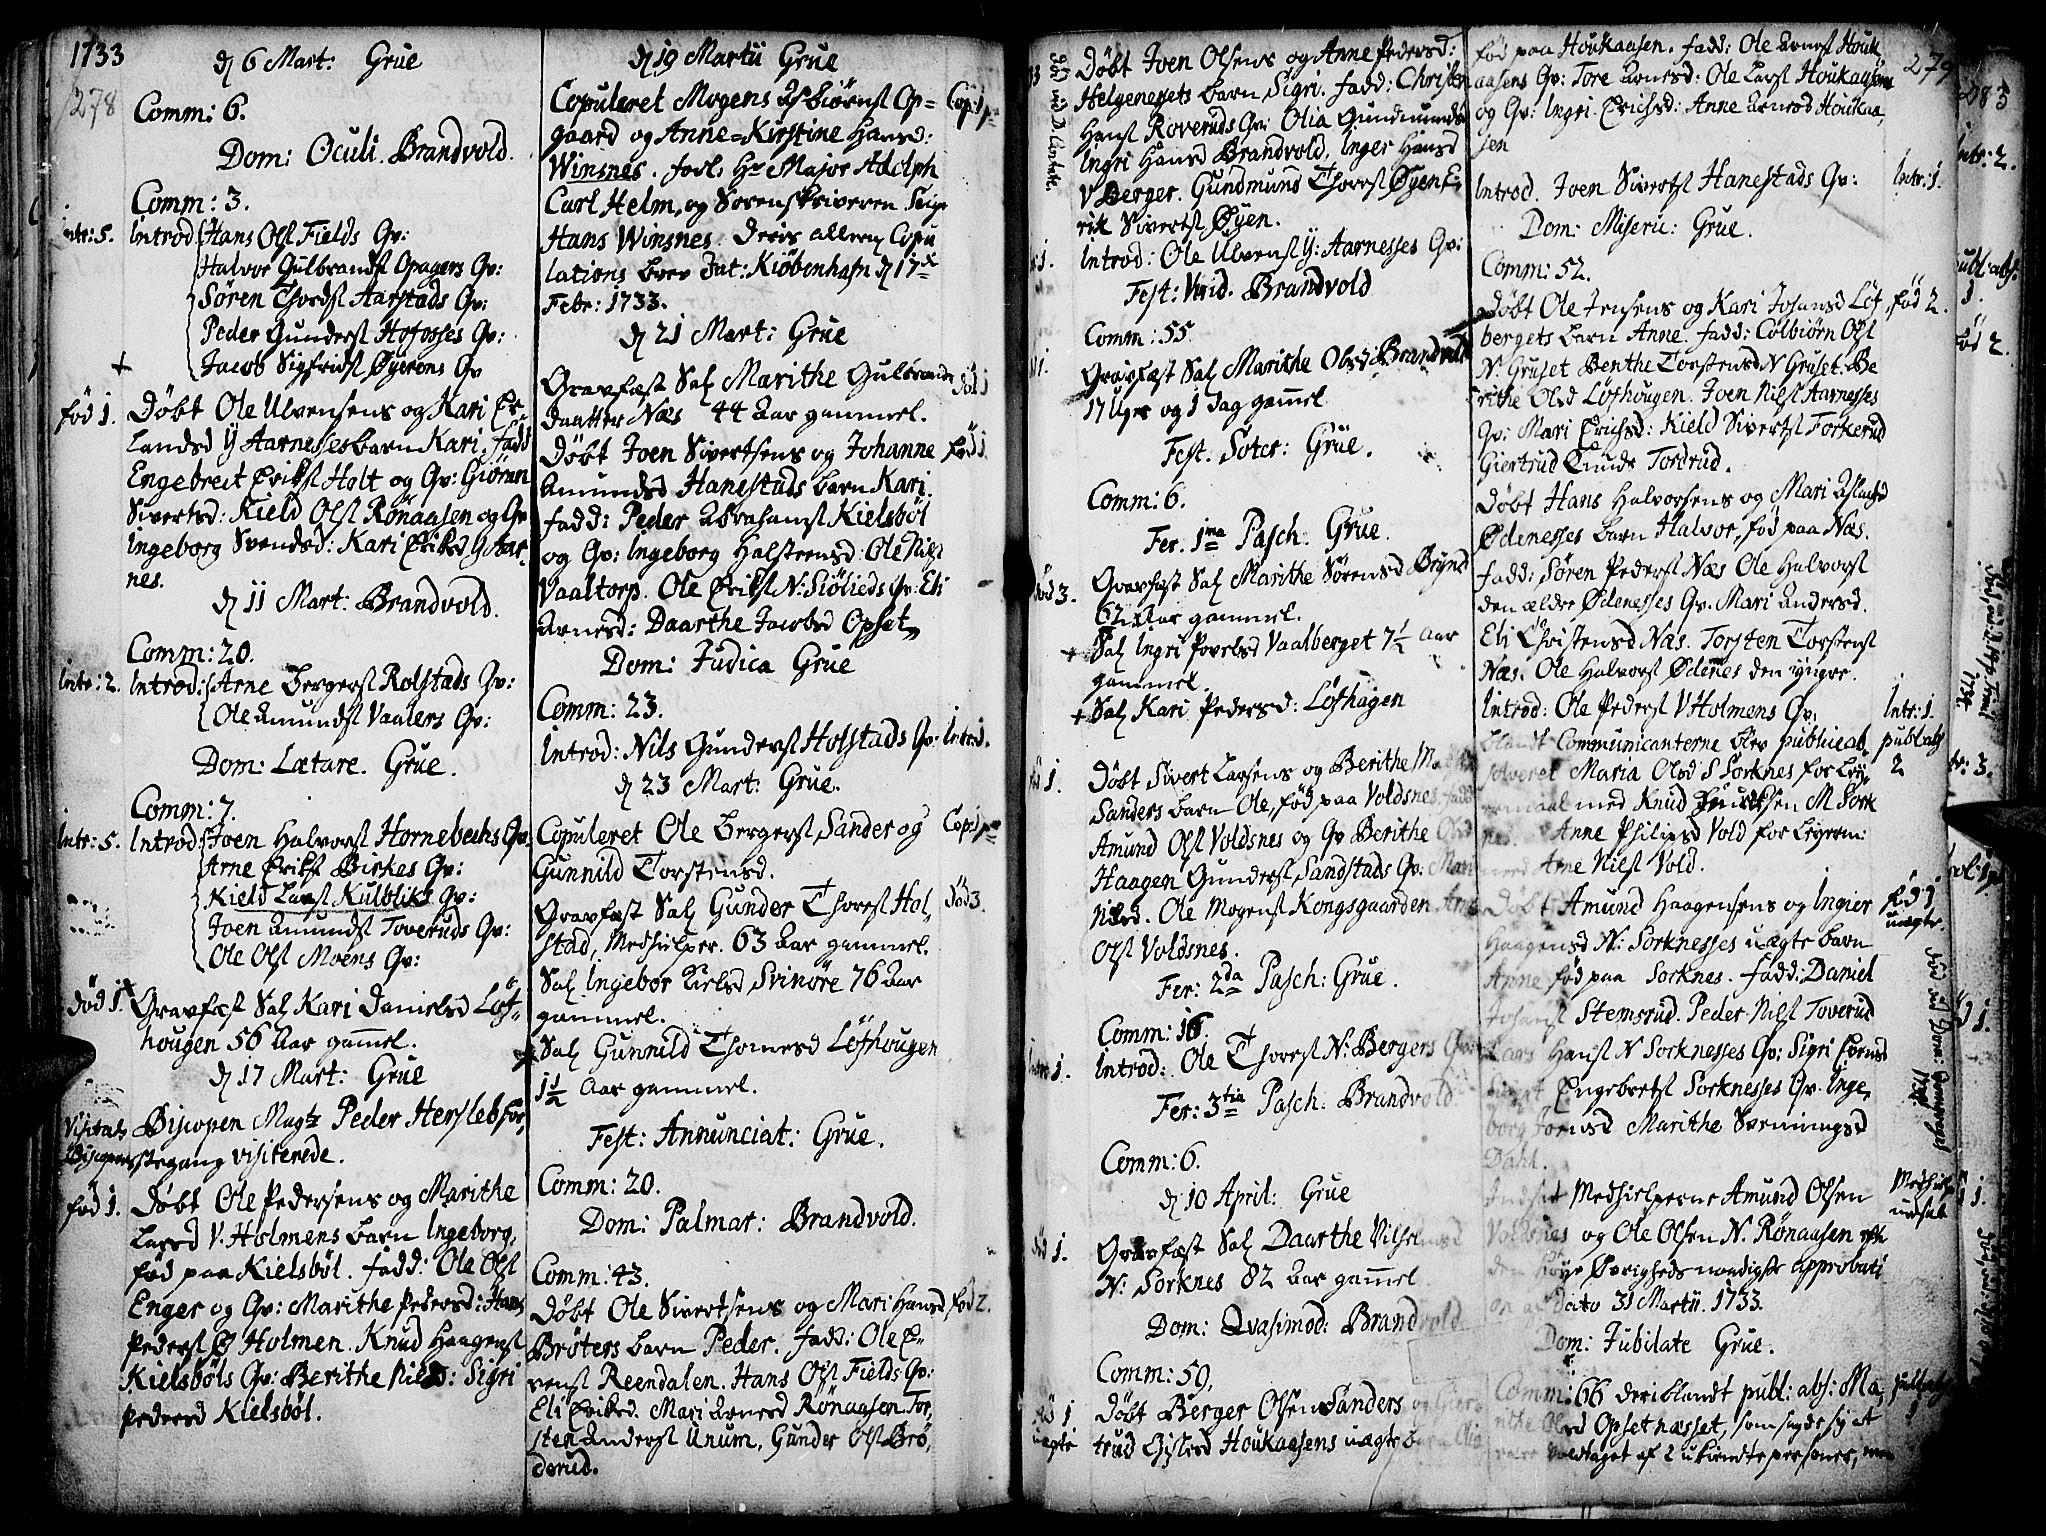 1733
278
d 6 Mart: Grue
Comm: 6.
Dom: Oculi. Brandvold.
Comm: 3.
Intr: 5. Introd: Hans Olss Fields Qv:
Halvor Gulbrandss Opagers Qv:
Søren Thordss Aarstads Qv:
Peder Gunderss Hofosses Qv:
Jacob Sigfridss Øyerens Qv
fød 1. Døbt Ole Ulvensens og Kari Er-
landsd Y Aarnesses barn Kari, fadd
Engebret Erikss Holt og Qv: Giøran
Sivertsd: Kield Olss Rønaasen og Qv
Ingeborg Svendsd: Kari Eriksd Y Aar-
nes.
d 11 Mart: Brandvold.
Comm: 20.
Intr: 2. Introd: Arne Bergerss Rolstads Qv:
Ole Amundss Vaalers Qv:
Dom: Lætare. Grue.
Comm: 7.
Intr: 5. Introd: Joen Halvorss Hornebechs Qv
Arne Erikss Birkes Qv:
Kield Larss Kulbliks Qv:
Joen Amundss Toveruds Qv:
Ole Olss Moens Qv:
død 1. Gravfæst Sal Kari Danielsd Løf-
hougen 56 Aar gamel.
d 17 Mart: Grue
Visitats Biscopen Magr Peder Hersleb før,
Biscopens stegang visiterede.
fød 1. Døbt Ole Pedersens og Marithe
Larsd V. Holmens barn Ingeborg,
fød paa Kielsbøl. fadd: Ole Olss
Enger og Qv: Marithe Pedersd: Hans
Pederss Ø Holmen. Knud Haagenss
Kielsbøls Qv: Berithe Nielsd: Sigri
Pedersd Kielsbøl.
d 19 Martii Grue
Copuleret Mogens Asbiørnss Op= Cop: 1 pr
gaard og Anne=Kirstine Hansd:
Winsnes. forl. Hr Major Adolph
Carl Helm, og Sorenskriveren Seigr
Hans Winsnes. deres allern Copu
lations brev Dat: Kiøbenhafn d 17
Febr: 1733.
d 21 Mart: Grue
Gravfæst Sal Marithe Gulbrands død 1
daatter Næs 44 Aar gammel.
Døbt Joen Sivertsens og Johanne fød 1
Amundsd Hanestads barn Kari.
fadd: Peder Abrahamss Kielsbøl
og Qv: Ingeborg Halstensd: Ole Nilss
Vaaltorp. Ole Erikss N: Siølieds Qv: Eli
Arnesd: Daarthe Jacobsd Opset
Dom: Judica Grue
Comm: 23.
Introd: Nils Gunderss Holstads Qv: Intr: 1.
d 23 Mart: Grue.
Copuleret Ole Bergerss Sander og Cop: 1 pr
Gunnild Torstensd.
Gravfæst Sal Gunder Thoress Hol, død 3.
stad, Medhielper. 63 Aar gammel.
Sal Ingebor Nielsd Svinøre 76 Aar
gammel.
Sal Gunnild Thomesd Løfhougen
1 1/2 Aar gammel.
Fest: Annunciat: Grue.
Comm: 20.
Dom: Palmar: Brandvold.
Comm: 43.
Døbt Ole Sivertsens og Mari Hansd fød 2.
Brøters barn Peder. fadd: Ole E-
venss Reendalen. Hans Olss Fields Qv:
Eli Eriksd. Mari Arnesd Rønaasen. Tor,
sten Anderss Unum, Gunder Olss Brø,
derud.
Døbt Joen Olsens og Anne Pedersd:
Helgenessets barn Sigri. fadd: Christen
Hanss Roveruds Qv: Olia Gundmunds
Ingri Hansd Brandvold, Inger Hansd
V Berger. Gundmund Thoress Øyen E,
rik Sivertss Øyen.
Introd: Ole Ulvenss Y: Aarnesses Qv:
Fest: Virid. Brandvold
Comm: 55.
Gravfæst Sal Marithe Olsd Brandvold
17 Uger og 1 dag gamel
Fest. Soter: Grue.
Comm: 6.
Fer. 1ma Pasch. Grue.
død 3. Gravfæst Sal Marithe Sørensd Grynd
62 Aar gammel.
Sal Ingri Povelsd Vaalberget 7 1/2 Aar
gammel.
Sal Kari Pedersd: Løfhagen
Døbt Sivert Larsens og Berithe
Sanders barn Ole, fød paa Voldsnes. fadd
Amund Olss Voldsnes og Qv Berithe Olsd
Haagen Gunderss Sandstads Qv: Mari
Nilsd. Ole Mogenss Kongsgaarden Arne
Olss Voldsnes.
Fer: 2da Pasch: Grue.
Comm: 16.
Introd: Ole Thoress N: Bergers Qv:
Fer: 3tia Pasch: Brandvold.
Comm: 6.
d 10 April: Grue
Gravfæst Sal Daarthe Vilhelmsd
N: Sorknes 82 Aar gamel
Dom: Qvasimod: Brandvold
Comm: 59.
Døbt Berger Olsen Sanders og Gier
uægte trud Gislesd Houkaasens uægte barn Olia
279
fød paa Houkaasen. fadd: Ole Arness Houk
aasens Qv: Tore Arnesd: Ole Larss Houkaasen
og Qv: Ingri Erichsd: Anne Arnesd Houkaa,
sen
Introd. Joen Sivertss Hanestads Qv: Intr: 1.
Dom: Miseric: Grue.
Comm: 52.
Døbt Ole Jensens og Kari Johansd Løf, fød 2.
bergets barn Anne. fadd: Colbiørn Olss
N: Gruset Benthe Torstensd N Gruset. Be
rithe Olsd Løfhougen. Joen Nilss Aarnesses
Qv: Mari Erichsd: Kield Sivertss Forkerud
Giertrud Tordrud.
Døbt Hans Halvorsens og Mari Aslachsd
Ødenesses barn Halvor, fød paa Næs.
fadd: Søren Pederss Næs Ole Halvorss
den ældre Ødenesses Qv. Mari Andersd.
Eli Christensd Næs. Torsten Torstenss
Næs. Ole Halvorss Ødenes den yngre.
Introd: Ole Pederss V Holmens Qv: Intr: 1.
blandt Communicanterne blev publice ab, publ: abs
solveret Maria Olsd S Sorknes for Ley, 2
ermaal med Knud Erichsen M Sork
nes. Anne Philipsd Vold for Leyerm:
med Arne Nielss Vold.
Døbt Amund Haagensens og Ingier fød 1
Haagensd N: Sorknesses uægte barn uægte.
Anne fød paa Sorknes. fadd: Daniel
Johanss Stemsrud. Peder Nilss Toverud
Lars Hanss N Sorknesses Qv: Sigri
Engebretss Sorknesses Qv. Inge,
borg Marithe Svenningsd
Dahl.
Indsat Medhielperne Amund Olsen Medhielp
Voldsnes og Ole Olsen N. Rønaasen efter indsat
den høye Øvrigheds naadigste approbati
on af Dato 31 Martii. 1733.
Dom: Jubilate Grue.
Comm: 66 deriblandt publ: abs: Ma, publ: abs
rithe Olsd Opsetnæsset, som sagde sig at 1
være voldtaget af 2 ukiendte personer,
283
Intr: 2.
publ: abs:
1.
fød 2.